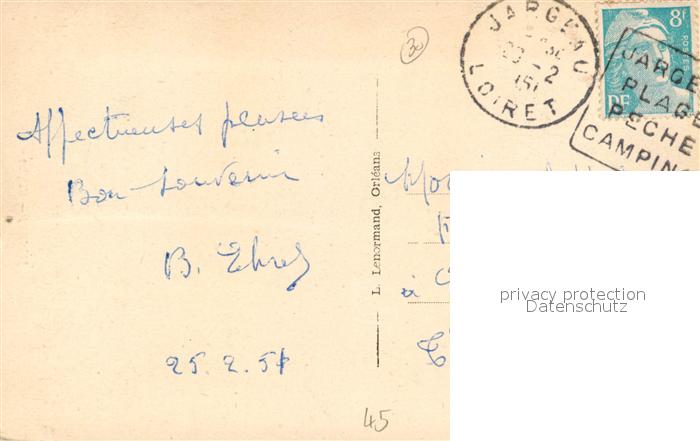 Affectueuses pensées
Bon souvenir
B.
25.2.51
L. Lenormand, Orléans
30
JARGEAU
-2
51
LOIRET
8F
RF
JARGE
PLAGE
PECHE
CAMPING
à
45
privacy protection
Datenschutz